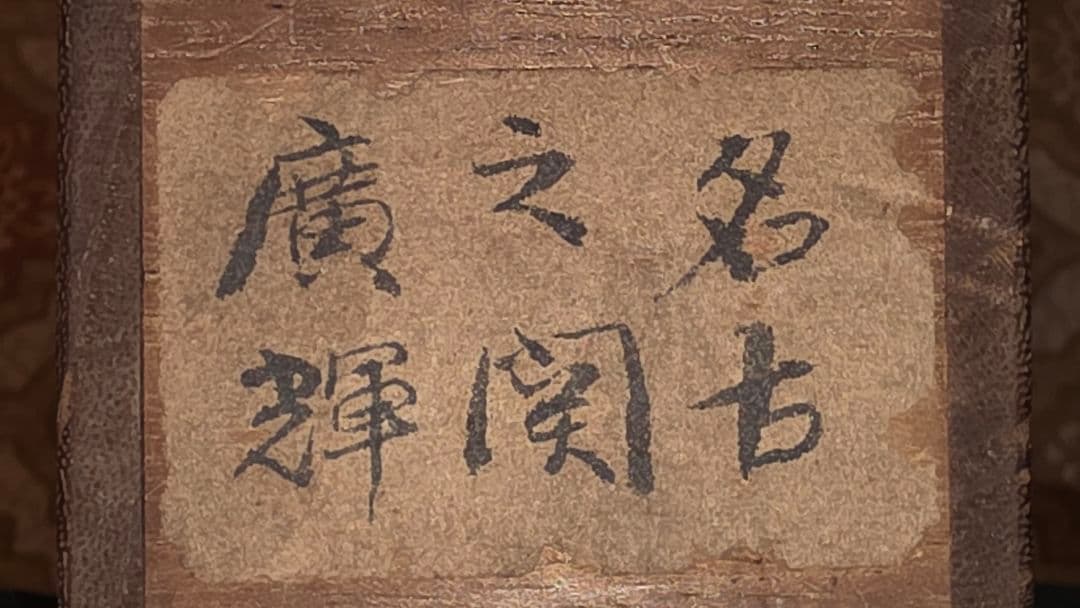 名古
之関
廣輝